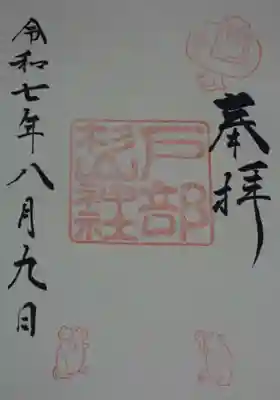 奉拝
戸部
令和七年八月九日